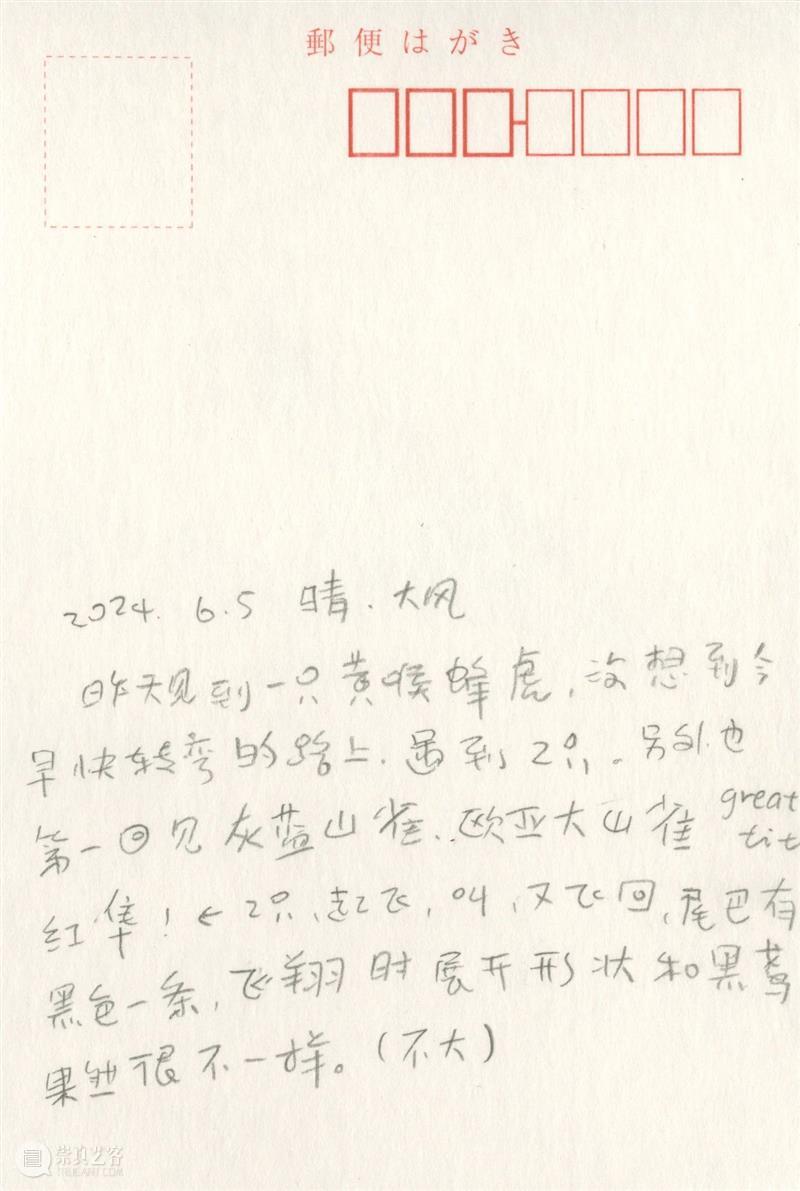 郵便はがき
2024. 6.5 晴. 大风
昨天见到一只黄喉蜂虎,没想到今
早快转弯的路上.遇到2只。另外也
第一回见灰蓝山雀、欧亚大山雀 great tit
红隼!←2只,起飞,叫,又飞回,尾巴有
黑色一条,飞翔时展开形状和黑鸢
果然很不一样。(不大)
崇真艺客
TRUEART.COM